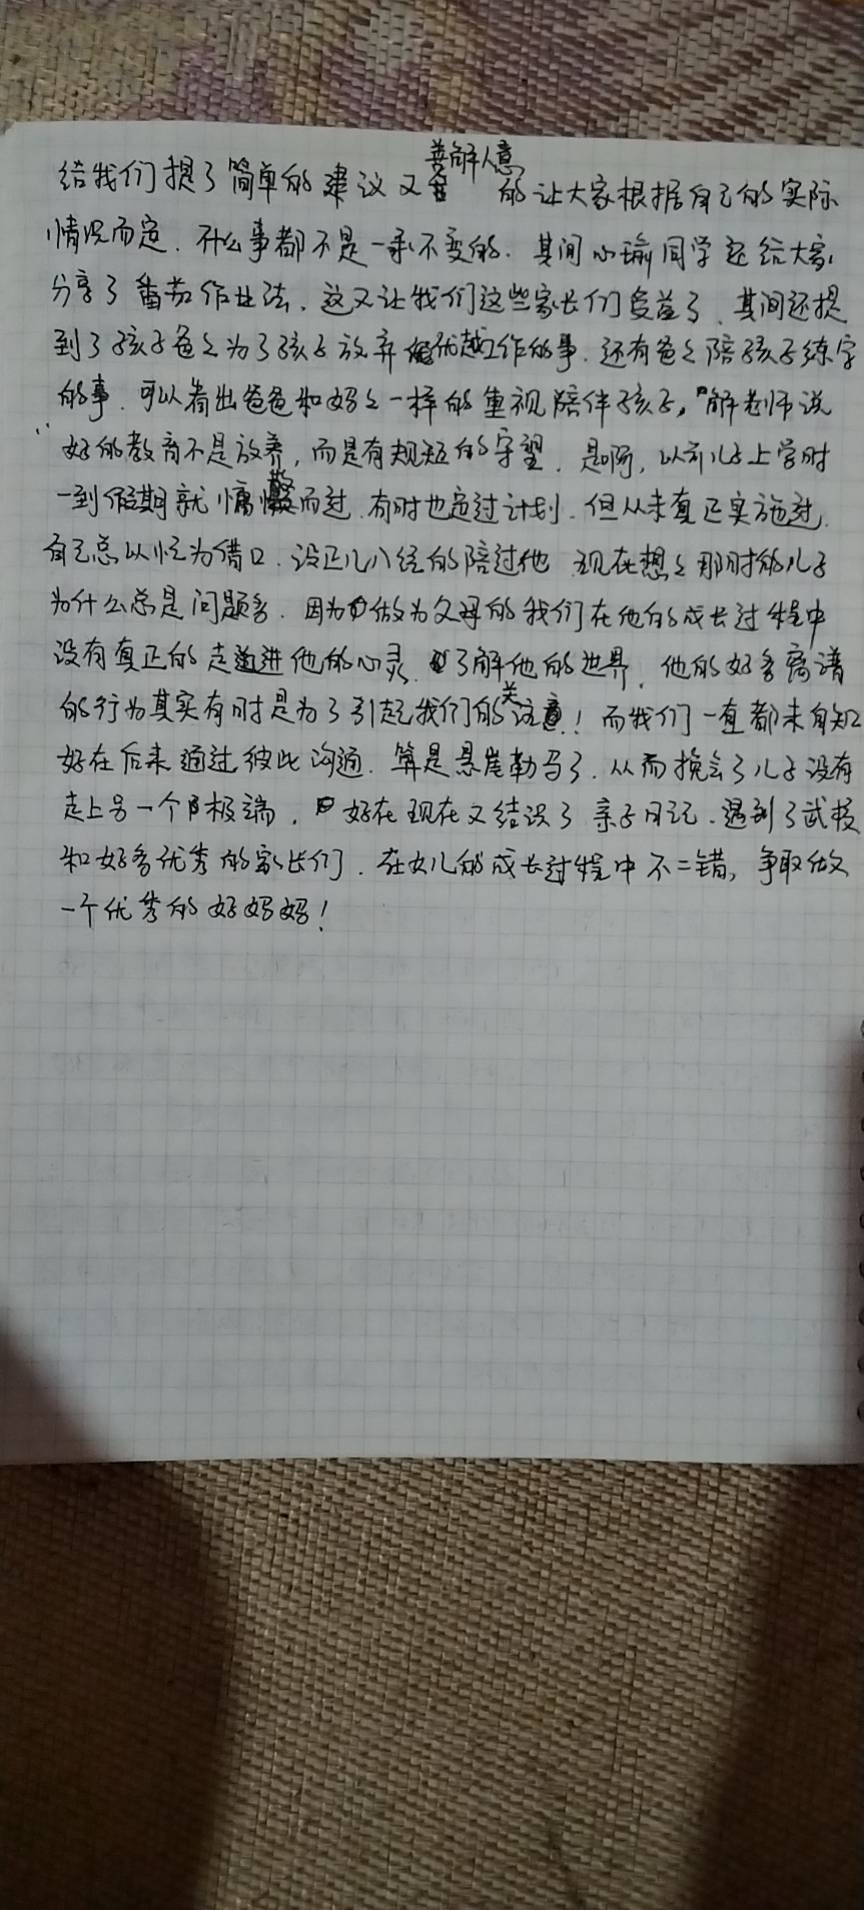 给我们提了简单的建议又善解人意的让大家根据自己的实际
情况而定.什么事都不是一承不变的.其间小瑜同学还给大家
分享了番茄作业法.这又让我们这些家长们受益了.其间还提
到了孩子爸々为了孩子放弃优越工作的事.还有爸々陪孩子练字
的事.可以看出爸爸和妈々一样的重视陪伴孩子,解老师说
“好的教育不是放养,而是有规矩的守望.是啊,以前儿子上学时
一到假期就慵懒而过.有时也定过计划.但从未真正实施过.
自己总以忙为借口.没正儿八经的陪过他 现在想々那时的儿子
为什么总是问题多.因为做为父母的我们在他的成长过程中
没有真正的走进他的心灵.了解他的世界.他的好多离谱
的行为其实有时是为了引起我们的关注!而我们一直都未自知
好在后来通过彼此沟通.算是悬崖勒马了.从而挽会了儿子没有
走上另一个极端.好在现在又结识了亲子日记.遇到了武校
和好多优秀的家长们.在女儿的成长过程中不二错,争取做
一个优秀的好妈妈!